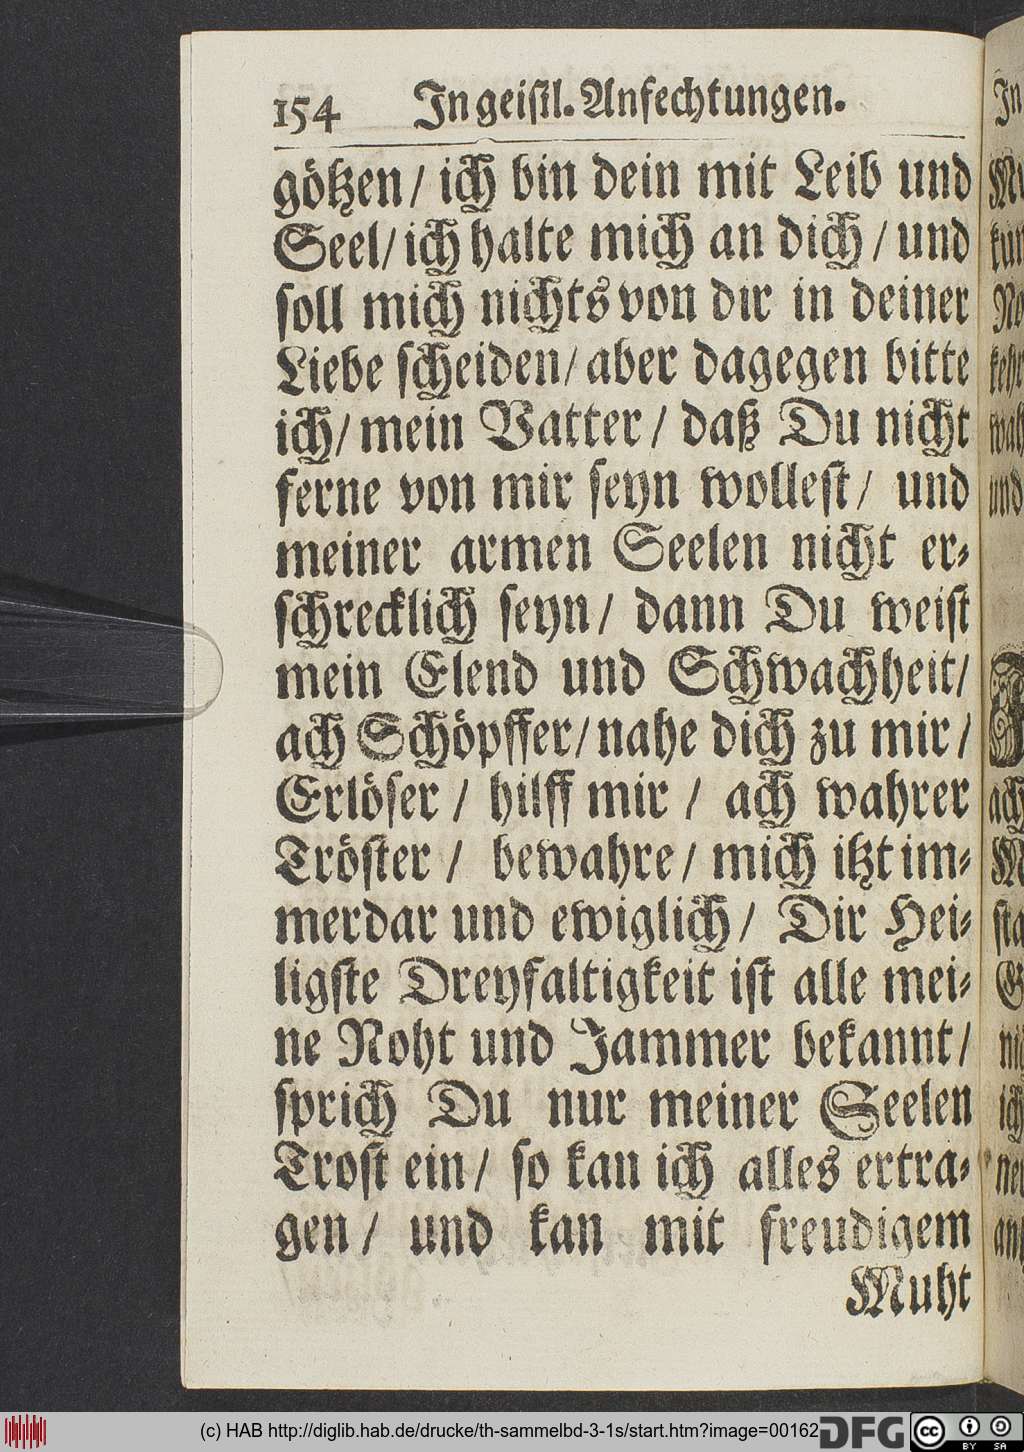 154 In geistl. Anfechtungen.
götzen/ ich bin dein mit Leib und
Seel/ ich halte mich an dich/ und
soll mich nichts von dir in deiner
Liebe scheiden/ aber dagegen bitte
ich/ mein Vatter/ daß Du nicht
ferne von mir seyn wollest/ und
meiner armen Seelen nicht er-
schrecklich seyn/ dann Du weist
mein Elend und Schwachheit/
ach Schöpffer/ nahe dich zu mir/
Erlöser/ hilff mir/ ach wahrer
Tröster/ bewahre/ mich itzt im-
merdar und ewiglich/ Dir Hei-
ligste Dreyfaltigkeit ist alle mei-
ne Noht und Jammer bekannt/
sprich Du nur meiner Seelen
Trost ein/ so kan ich alles ertra-
gen/ und kan mit freudigem
Muht
(c) HAB http://diglib.hab.de/drucke/th-sammelbd-3-1s/start.htm?image=00162
DFG
cc BY SA